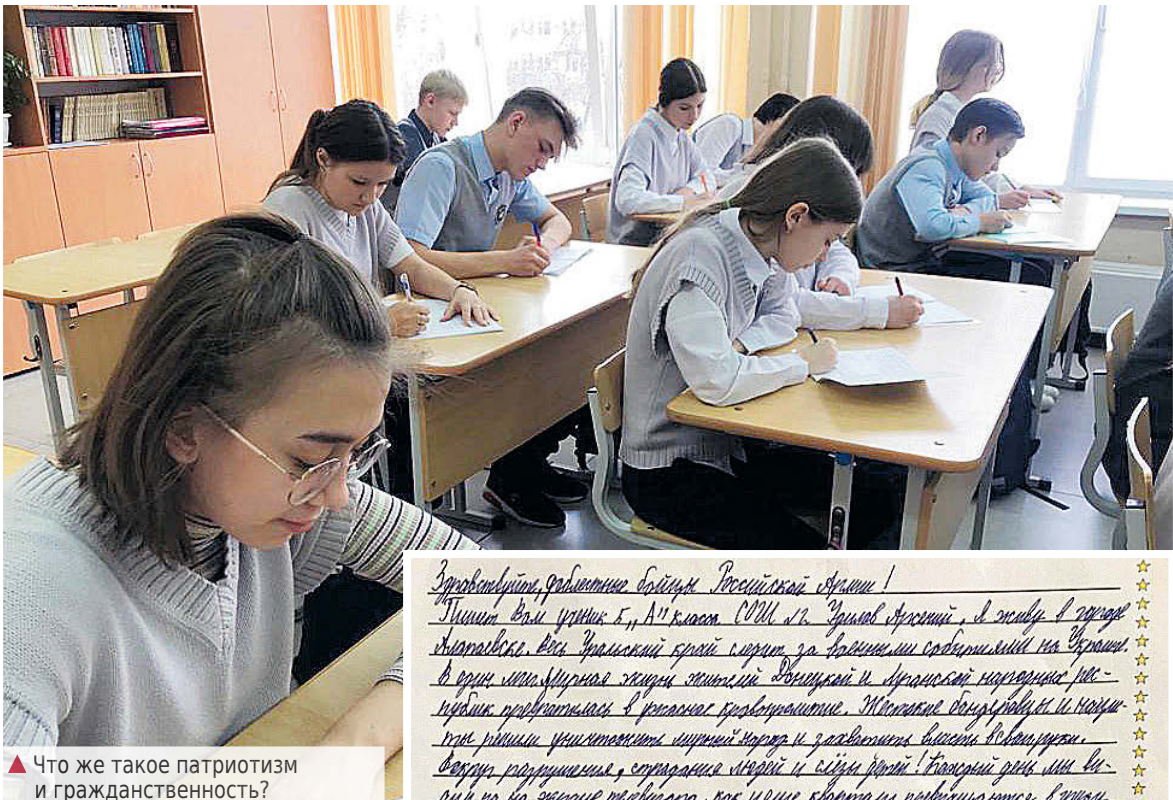 Что же такое патриотизм
и гражданственность?
Здравствуйте, доблестные бойцы Российской Армии!
Пишет Вам ученик 5 „А" класса СОШ №2 Арсений. Я живу в городе
Алапаевске. Весь Уральский край следит за военными событиями на Украине.
В один миг мирная жизнь жителей Донецкой и Луганской народных рес-
публик превратилась в ужасное кровопролитие. Жестокие бандеровцы и наци-
сты решили уничтожить мирный народ и захватить власть в свои руки.
Вокруг разрушения, страдания людей и слёзы детей! Каждый день мы ви-
как целые кварталы превращаются в